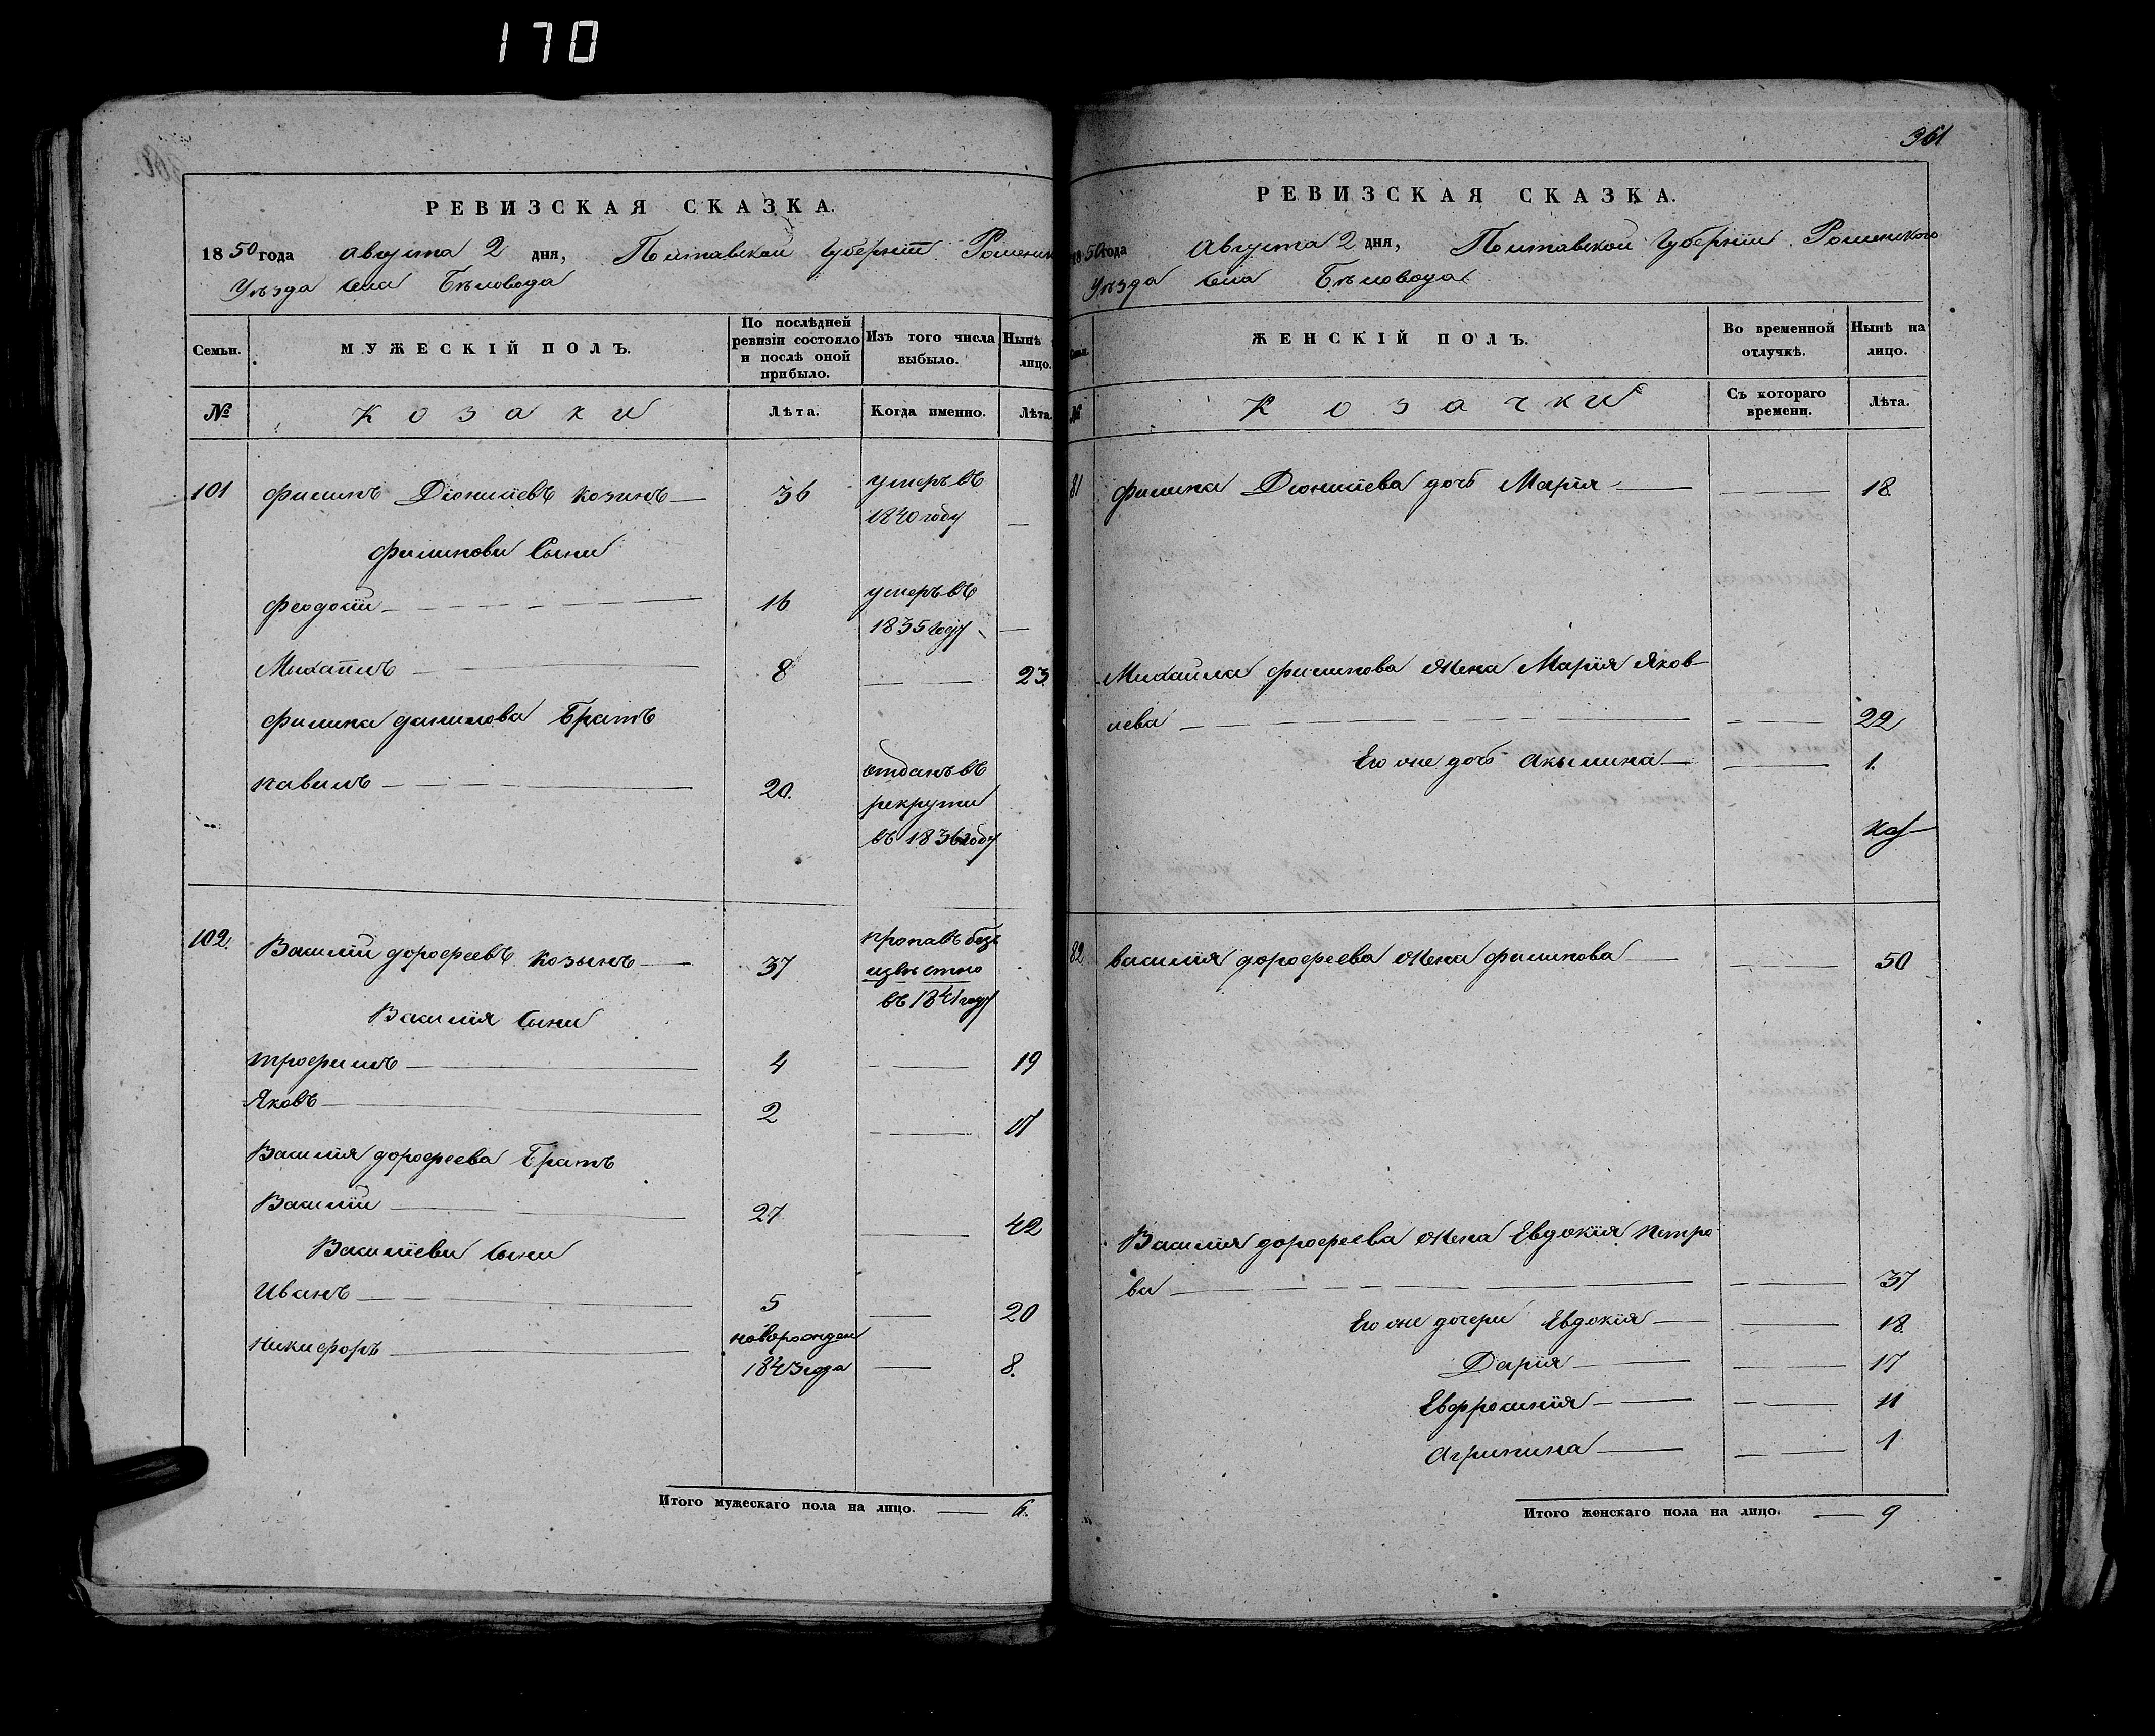 170
РЕВИЗСКАЯ СКАЗКА.
1850 года августа 2 дня, Полтавской Губернїи Роменск
Уѣзда села Бѣловода
Семьи.
МУЖЕСКІЙ ПОЛЪ.
По послѣдней ревизіи состояло и послѣ оной прибыло.
Изъ того числа выбыло.
Нынѣ
лицо.
№
Козаки
Лѣта.
Когда именно.
Лѣта.
101 Филипъ Дїонисїевъ Козинъ — 36 умеръ въ
1840 году —
Филипови Сыни
Феодосїй — 16 умеръ въ
1835 году —
Михаилъ — 8 — 23.
Филипа данилова Братъ
Павилъ — 20. отданъ въ
рекрути
въ 1836 году
102. Василїй дорофеевъ Козынъ — 37 пропавъ безъ
извѣстно
въ 1841 году
Василїя Сыни
Трофимъ — 4 — 19
Яковъ — 2 — 17
Василїя дорофеева Братъ
Василїй — 27 — 42
Василїеви Сыни
Иванъ — 5 — 20
Никифоръ — новорожден
1843 года — 8.
Итого мужескаго пола на лицо. — 6.
361
РЕВИЗСКАЯ СКАЗКА.
1850 года Августа 2 дня, Полтавской Губернїи Роменского
Уѣзда села Бѣловода
ЖЕНСКІЙ ПОЛЪ.
Во временной отлучкѣ.
Нынѣ на лицо.
№
Козачки
Съ котораго времени.
Лѣта.
81 Филипа Дїонисїева дочь Марїя — — 18.
Михаила Филипова жена Марїя Яков-
лева — — 22
Его же дочь Акылина — — 1.
82 Василїя дорофеева жена Филипова — — 50
Василїя дорофеева жена Евдокїя Петро
ва — — 37
Его же дочери Евдокїя — — 18.
Дарїя — — 17
Евфросинїя — — 11
Агрипина — — 1
Итого женскаго пола на лицо. — 9